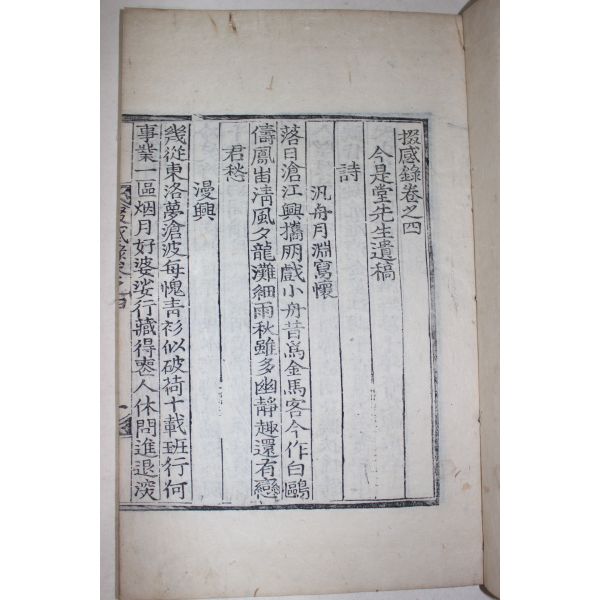 掇感錄卷之四
今是堂先生遺稿
詩
汎舟月淵寫懷
落日滄江興攜朋戲小舟昔爲金馬客今作白鷗
儔鳳岀淸風夕龍灘細雨秋雖多幽靜趣還有戀
君愁
漫興
幾從東洛夢滄波每愧靑衫似破荷十載班行何
事業一區烟月好婆娑行藏得喪人休問進退淡